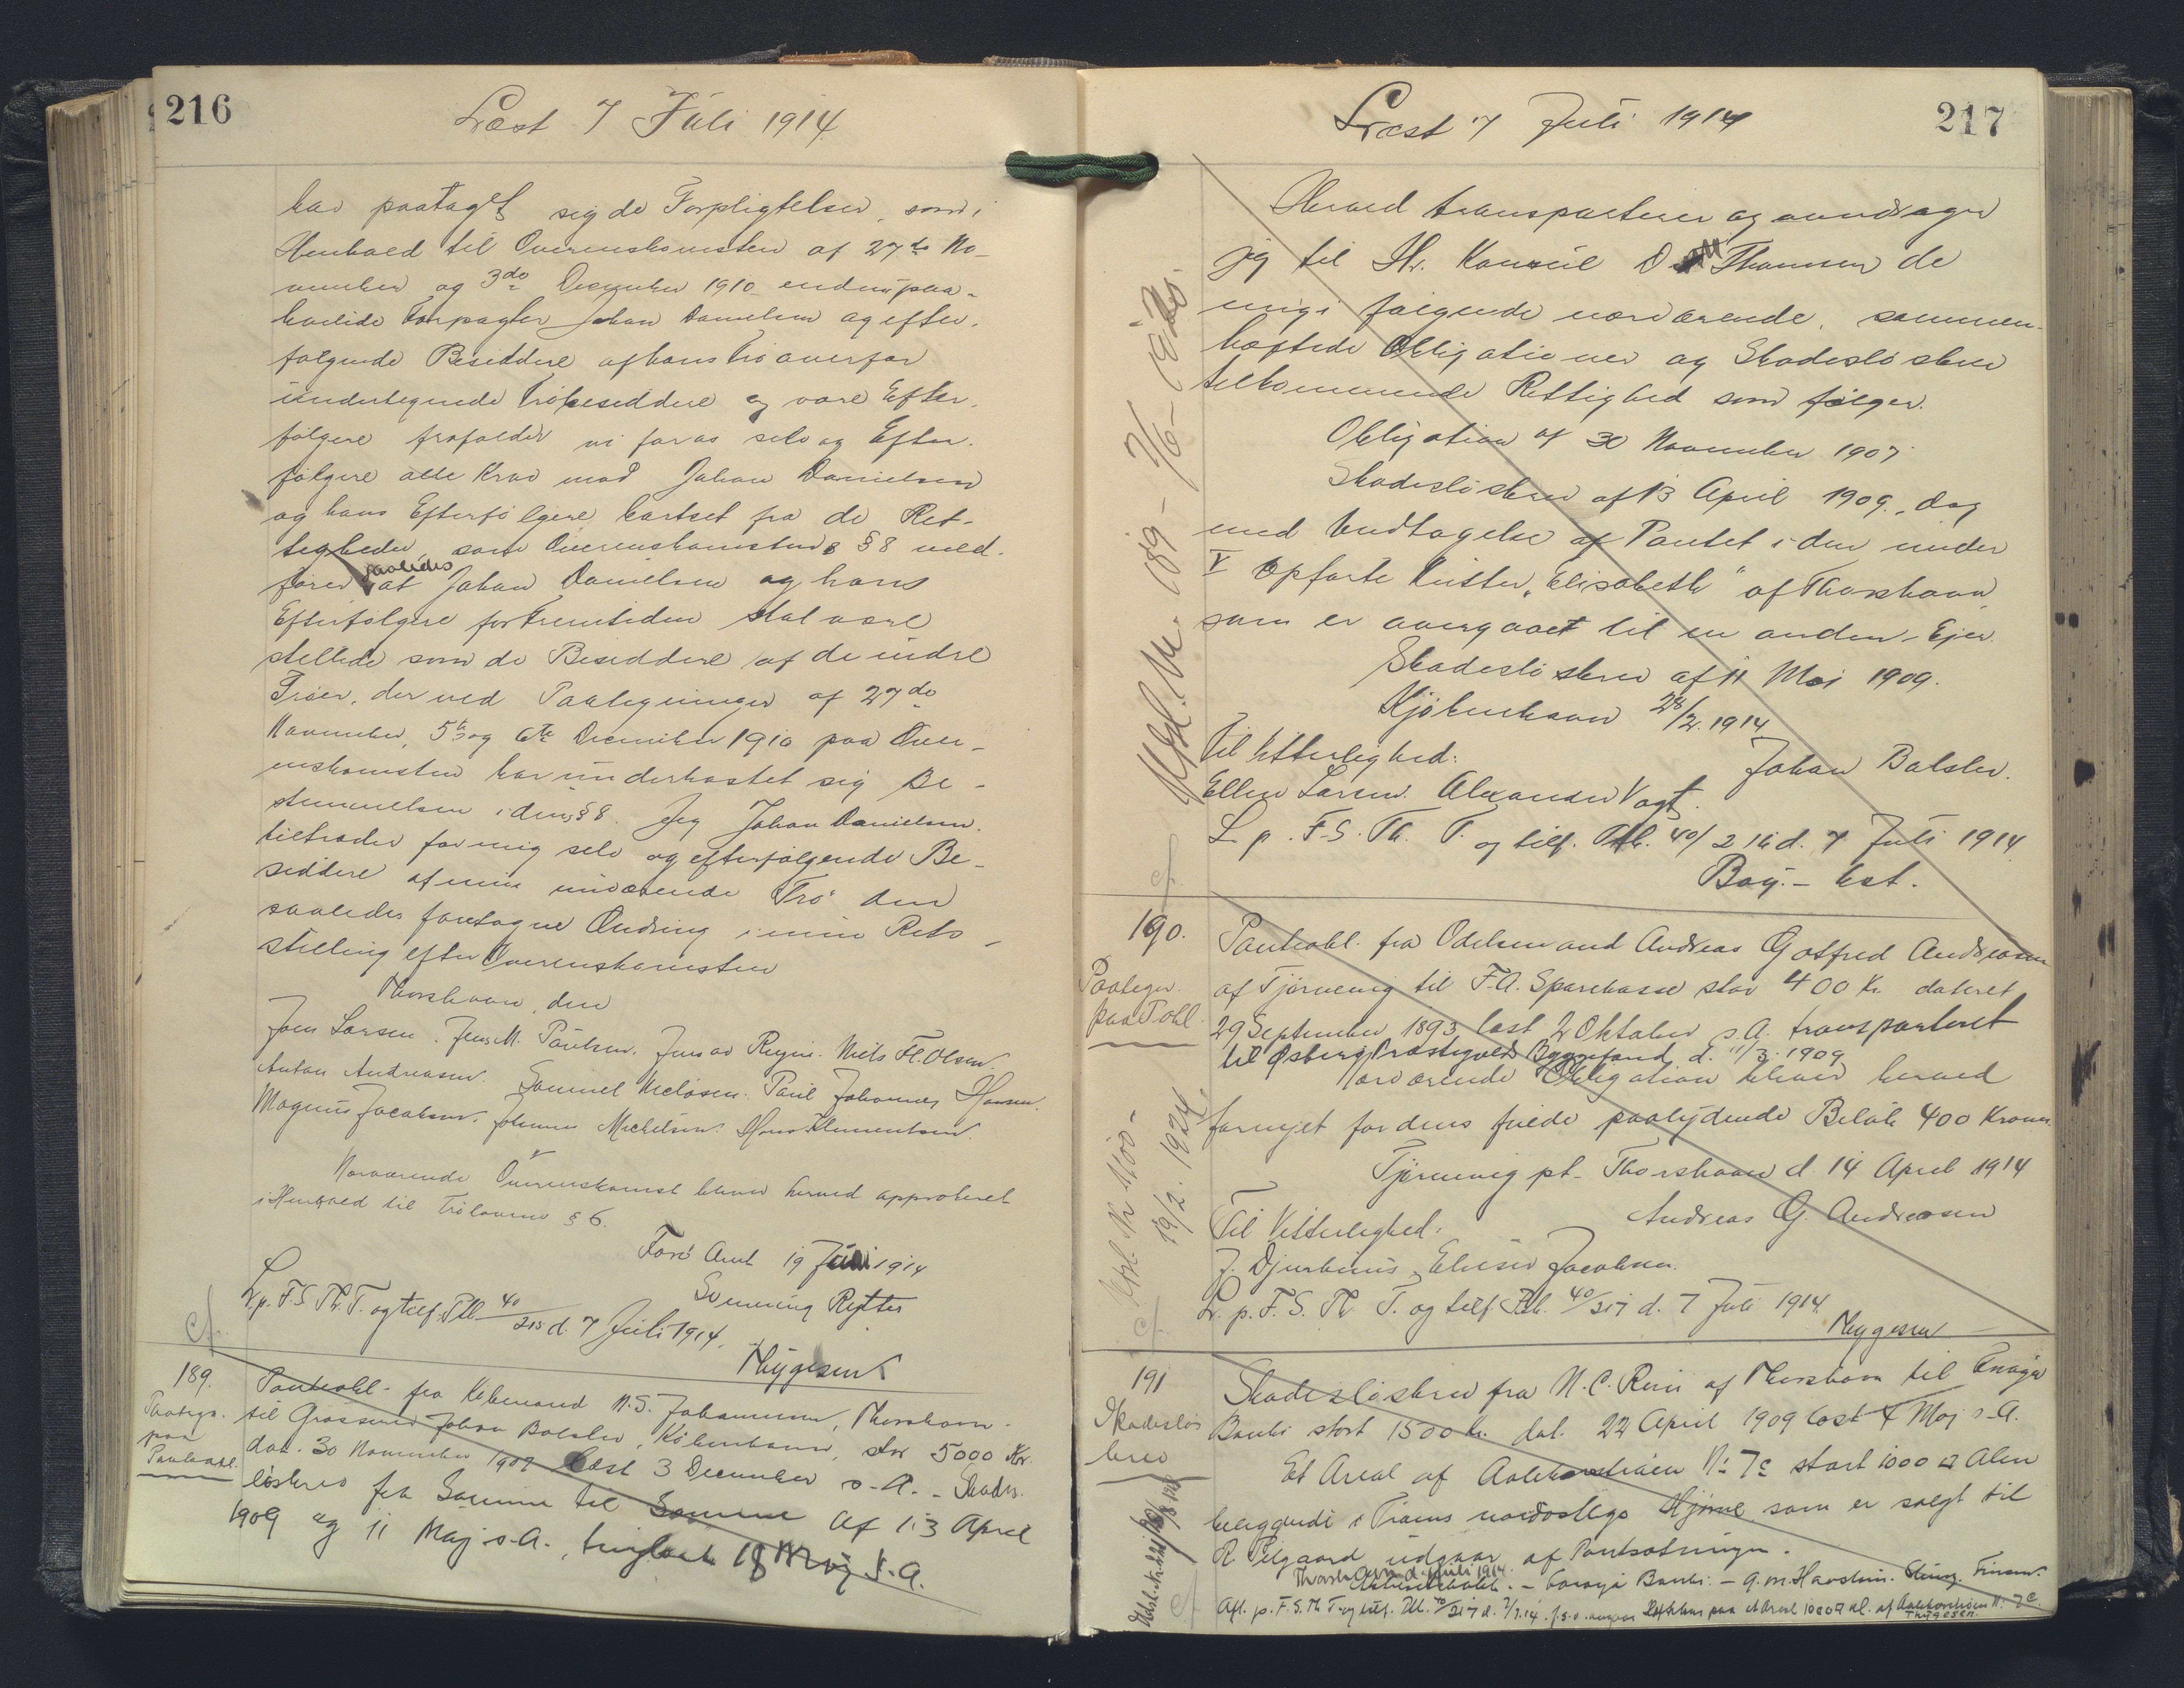 216
Læst 7 Juli 1914
har paataget sig de Forpligtelser, som i
Henhold til Overenskomsten af 27de No-
vember og 3die December 1910 endnu paa-
hvilede Forpagter Johan Danielsen og efter-
følgende Besiddere af hans Trø overfor
undertegnede Trøbesiddere og vore Efter-
følgere frafalder vi for os selv og Efter-
følgere alle Krav mod Johan Danielsen
og hans Efterfølgere bortset fra de Ret-
tigheder, som Overenskomstens § 8 med-
fører saaledes at Johan Danielsen og hans
Efterfølgere for Fremtiden skal være
stillede som de Besiddere af de indre
Trøer, der ved Paategninger af 27de
November, 5te og 6te December 1910 paa Over-
enskomsten har underkastet sig Be-
stemmelsen i dens § 8. Jeg Johan Danielsen
tiltræder for mig selv og efterfølgende Be-
siddere af min nuværende Trø den
saaledes foretagne Ændring i min Rets-
stilling efter Overenskomsten
Thorshavn, den
Joen Larsen. Jens M. Poulsen. Jens av Reyni. Niels Fl. Olsen.
Anton Andreasen. Samuel Niclasen. Paul Johannes Hansen.
Magnus Jacobsen. Johannes Michelsen. Hans Klementsen.
Nærværende Overenskomst bliver herved approberet
i Henhold til Trøloven § 6.
Færø Amt 19 Juni 1914
Svenning Rytter
L. p. F. S. Th. T. og tilf. Ptb. 40/215 d. 7 Juli 1914.
Thygesen
cf.
189.
Paategn.
paa
Panteobl.
Panteobl. fra Købmand N. S. Johannesen, Thorshavn
til Grosserer Johan Balslev, København, stor 5000 Kr.
dat. 30 November 1907 læst 3 December s. A. - Skades-
løsbrev fra Samme til Samme af 13 April
1909 og 11 Maj s. A., tinglæst 18 Maj s. A.
217
Læst 7 Juli 1914
Herved transporterer og overdrager
jeg til Hr. Konsul D. Thomsen de
mig i følge nærværende, sammen-
hæftede Obligationer og Skadesløsbreve
tilkommende Rettighed som følger.
Obligation af 30 November 1907
Skadesløsbrev af 13 April 1909, dog
med Undtagelse af Pantet i den under
V opførte Kutter "Elisabeth" af Thorshavn,
som er overgaaet til en anden Ejer.
Skadesløsbrev af 11 Maj 1909.
Kjøbenhavn 28/2. 1914
Til Vitterlighed: Johan Balslev.
Ellen Larsen. Alexander Vogt.
L. p. F. S. Th. T. og tilf. Ptb. 40/216 d. 7 Juli 1914
cf.
190.
Paategn.
paa Pobl.
19/2. 1924.
Panteobl. fra Odelsmand Andreas Gotfred Andreasen
af Tjørnevig til F. A. Sparekasse stor 400 Kr. dateret
29 September 1893, læst 2 Oktober s. A. transporteret
til Østerø Præstegælds Byggefond d. 11/3. 1909
Nærværende Obligation bliver herved
fornyet for dens fulde paalydende Beløb 400 Kroner.
Tjørnevig pt. Thorshavn d. 14 April 1914
Andreas G. Andreasen
Til Vitterlighed:
J. Djurhuus. Jacobsen.
L. p. F. S. Th. T. og tilf. Ptb. 40/217 d. 7 Juli 1914
Thygesen
cf.
191
Skadesløs
brev
Skadesløsbrev fra N. C. Rein af Thorshavn til Færøya
Banki stort 1500 Kr. dat. 22 April 1909 læst 4 Maj s. A.
Et Areal af Aalekærstrøen No 7c stort 1000 □ Alen
beliggende i Trøens nordøstlige Hjørne som er solgt til
R. Pilgaard udgaar af Pantsætningen.
Thorshavn d. Juli 1914
Aktieselskabet - Føroya Banki. -
Afl. p. F. S. Th. T. og tilf. Ptb. 40/217 d. 7/7. 14.
Thygesen.
cf.